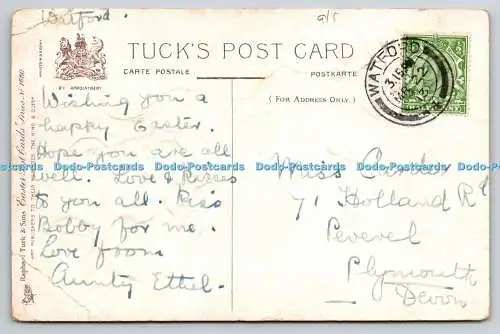 Watford.
9/5
TUCK'S POST CARD
CARTE POSTALE
POSTKARTE
BY APPOINTMENT
(FOR ADDRESS ONLY.)
Wishing you a
happy Easter.
Hope you are all
well. Love & Kisses
to you all. Kiss
Bobby for me.
Love from
Aunty Ethel.
WATFORD
Miss
71 Holland Rd
Peverel
Plymouth
Devon
Raphael Tuck & Sons "Easter Post Cards" Series
ART PUBLISHERS TO THEIR MAJESTIES THE KING & QUEEN
Dodo-Postcards Dodo-Postcards Dodo-Postcards Dodo-Postcards Dodo-Postcards Dodo-Postcards